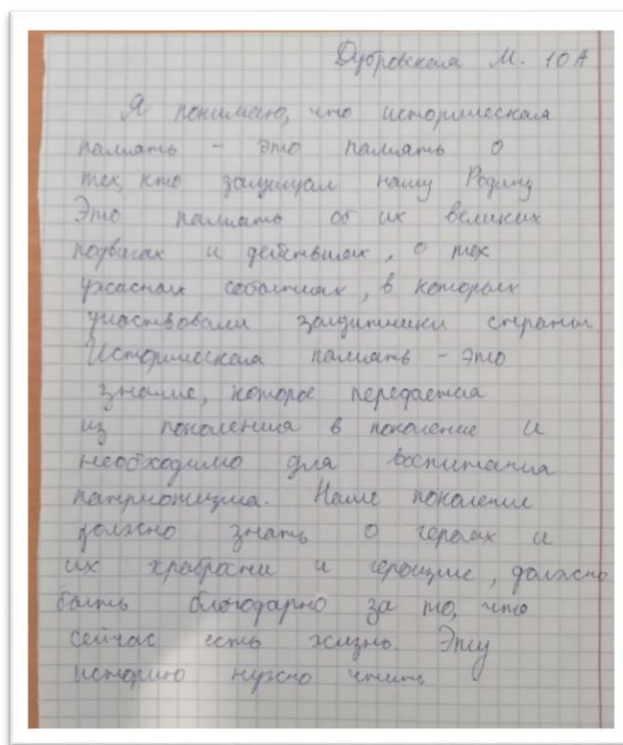 Дубровская М. 10А
Я понимаю, что историческая
память - это память о
тех, кто защищал нашу Родину
Это память об их великих
подвигах и действиях, о тех
ужасных событиях, в которых
участвовали защитники страны
Историческая память - это
знание, которое передается
из поколения в поколение и
необходимо для воспитания
патриотизма. Наше поколение
должно знать о героях и
их храбрости и героизме, должно
быть благодарно за то, что
сейчас есть жизнь. Эту
историю нужно чтить